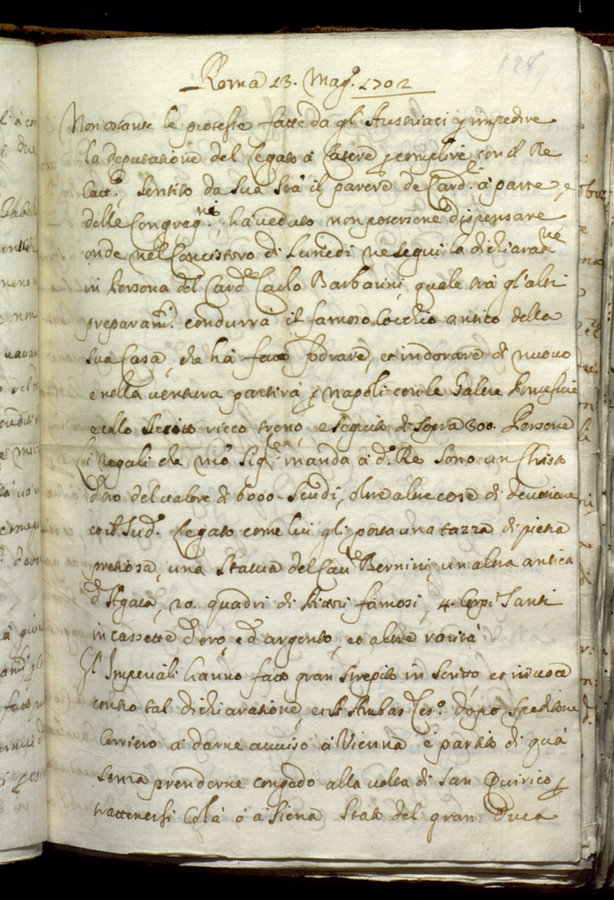 128
Roma 13. Mag.o 1702
Non ostante le proteste fatte da gli Austriaci p impedire
la deputatione del Legato à Latere p complire con il Re
Catt.o, sentito da Sua Stà il parere de Card.li à parte, e
delle Congreg.ni, hà veduto non potersene dispensare
onde nel Concistoro di Lunedì ne seguì la dichiarat.ne
in Persona del Card.le Carlo Barbarini, quale trà gl'altri
preparam.ti condurrà il famoso Cocchio antico della
sua Casa, che hà fatto foderare, et indorare di nuovo
e nella ventura partirà p Napoli con le Galere Pontificie
e collo ricco treno, e seguito di sopra 300. Persone
Li regali che Nro Sig.re manda à d.o Re sono un Christo
d'oro del valore di 6000. Scudi, oltre altre cose di devotione
et il Sud.o Legato come lui gli porta una tazza di pietra
pretiosa, una Statua del Cav.e Bernini, un altra antica
d'Agata, 20. quadri di Pittori famosi, 4. Corpi Santi
in cassette d'oro, e d'argento, et altre rarità
Gl'Imperiali hanno fatto gran strepito in scritto, et in voce
contro tal dichiaratione, et l'Ambas.r Ces.o dopo spedito
Corriero à darne avviso à Vienna è partito di quà
senza prenderne congedo alla volta di San Quirico p
trattenersi colà ò à Siena Stato del gran Duca